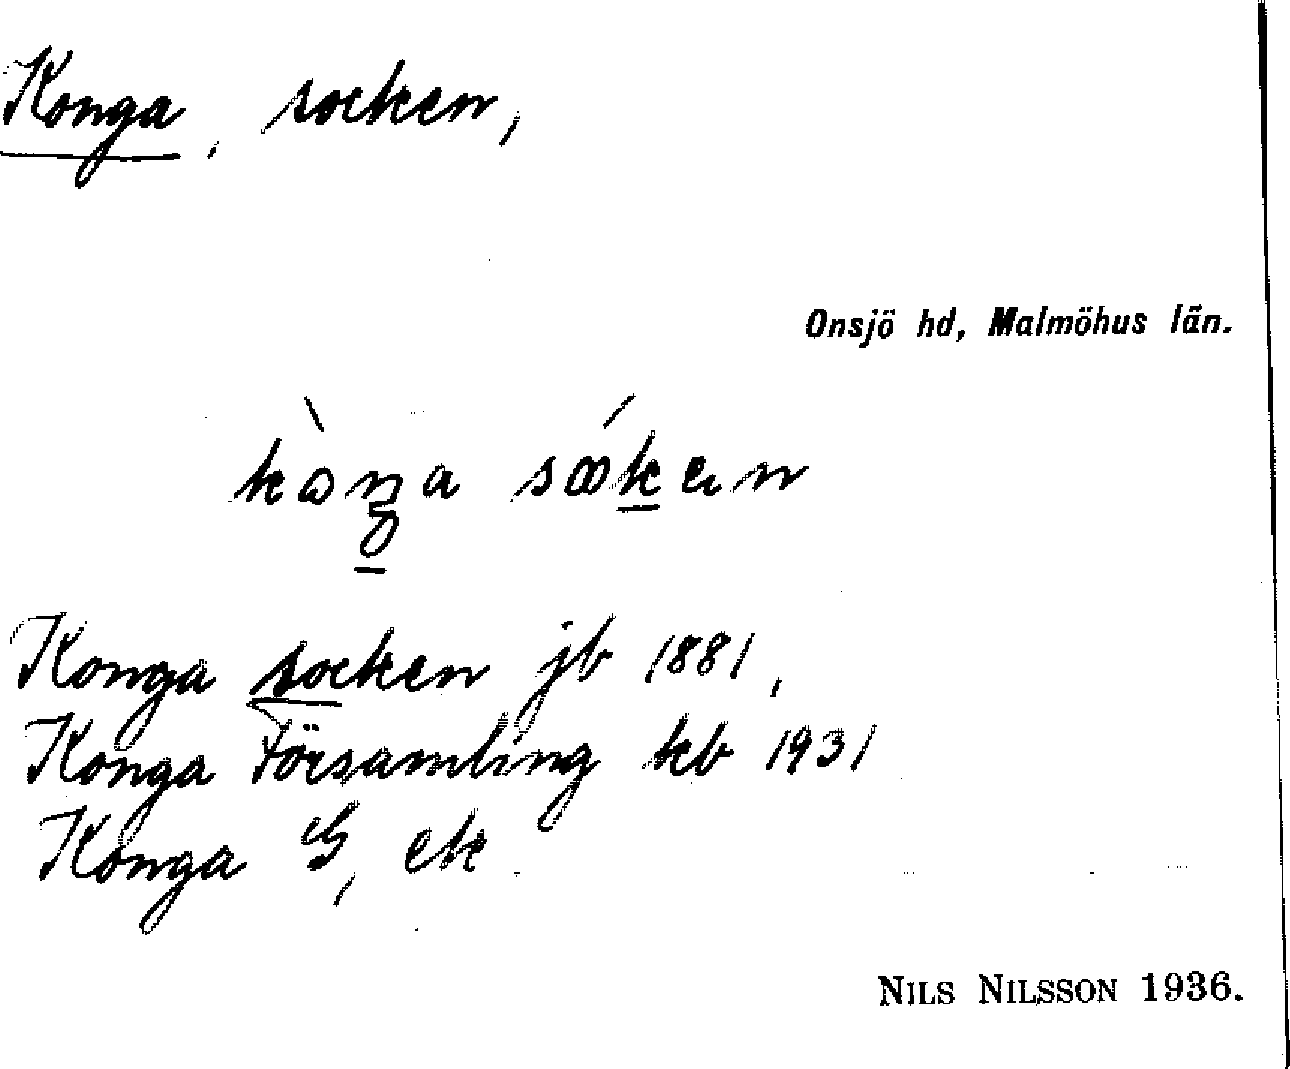 Konga, socken,
Onsjö hd, Malmöhus län.
Konga socken jb 1881,
Konga Församling kb 1931
Konga S, ek
NILS NILSSON 1936.